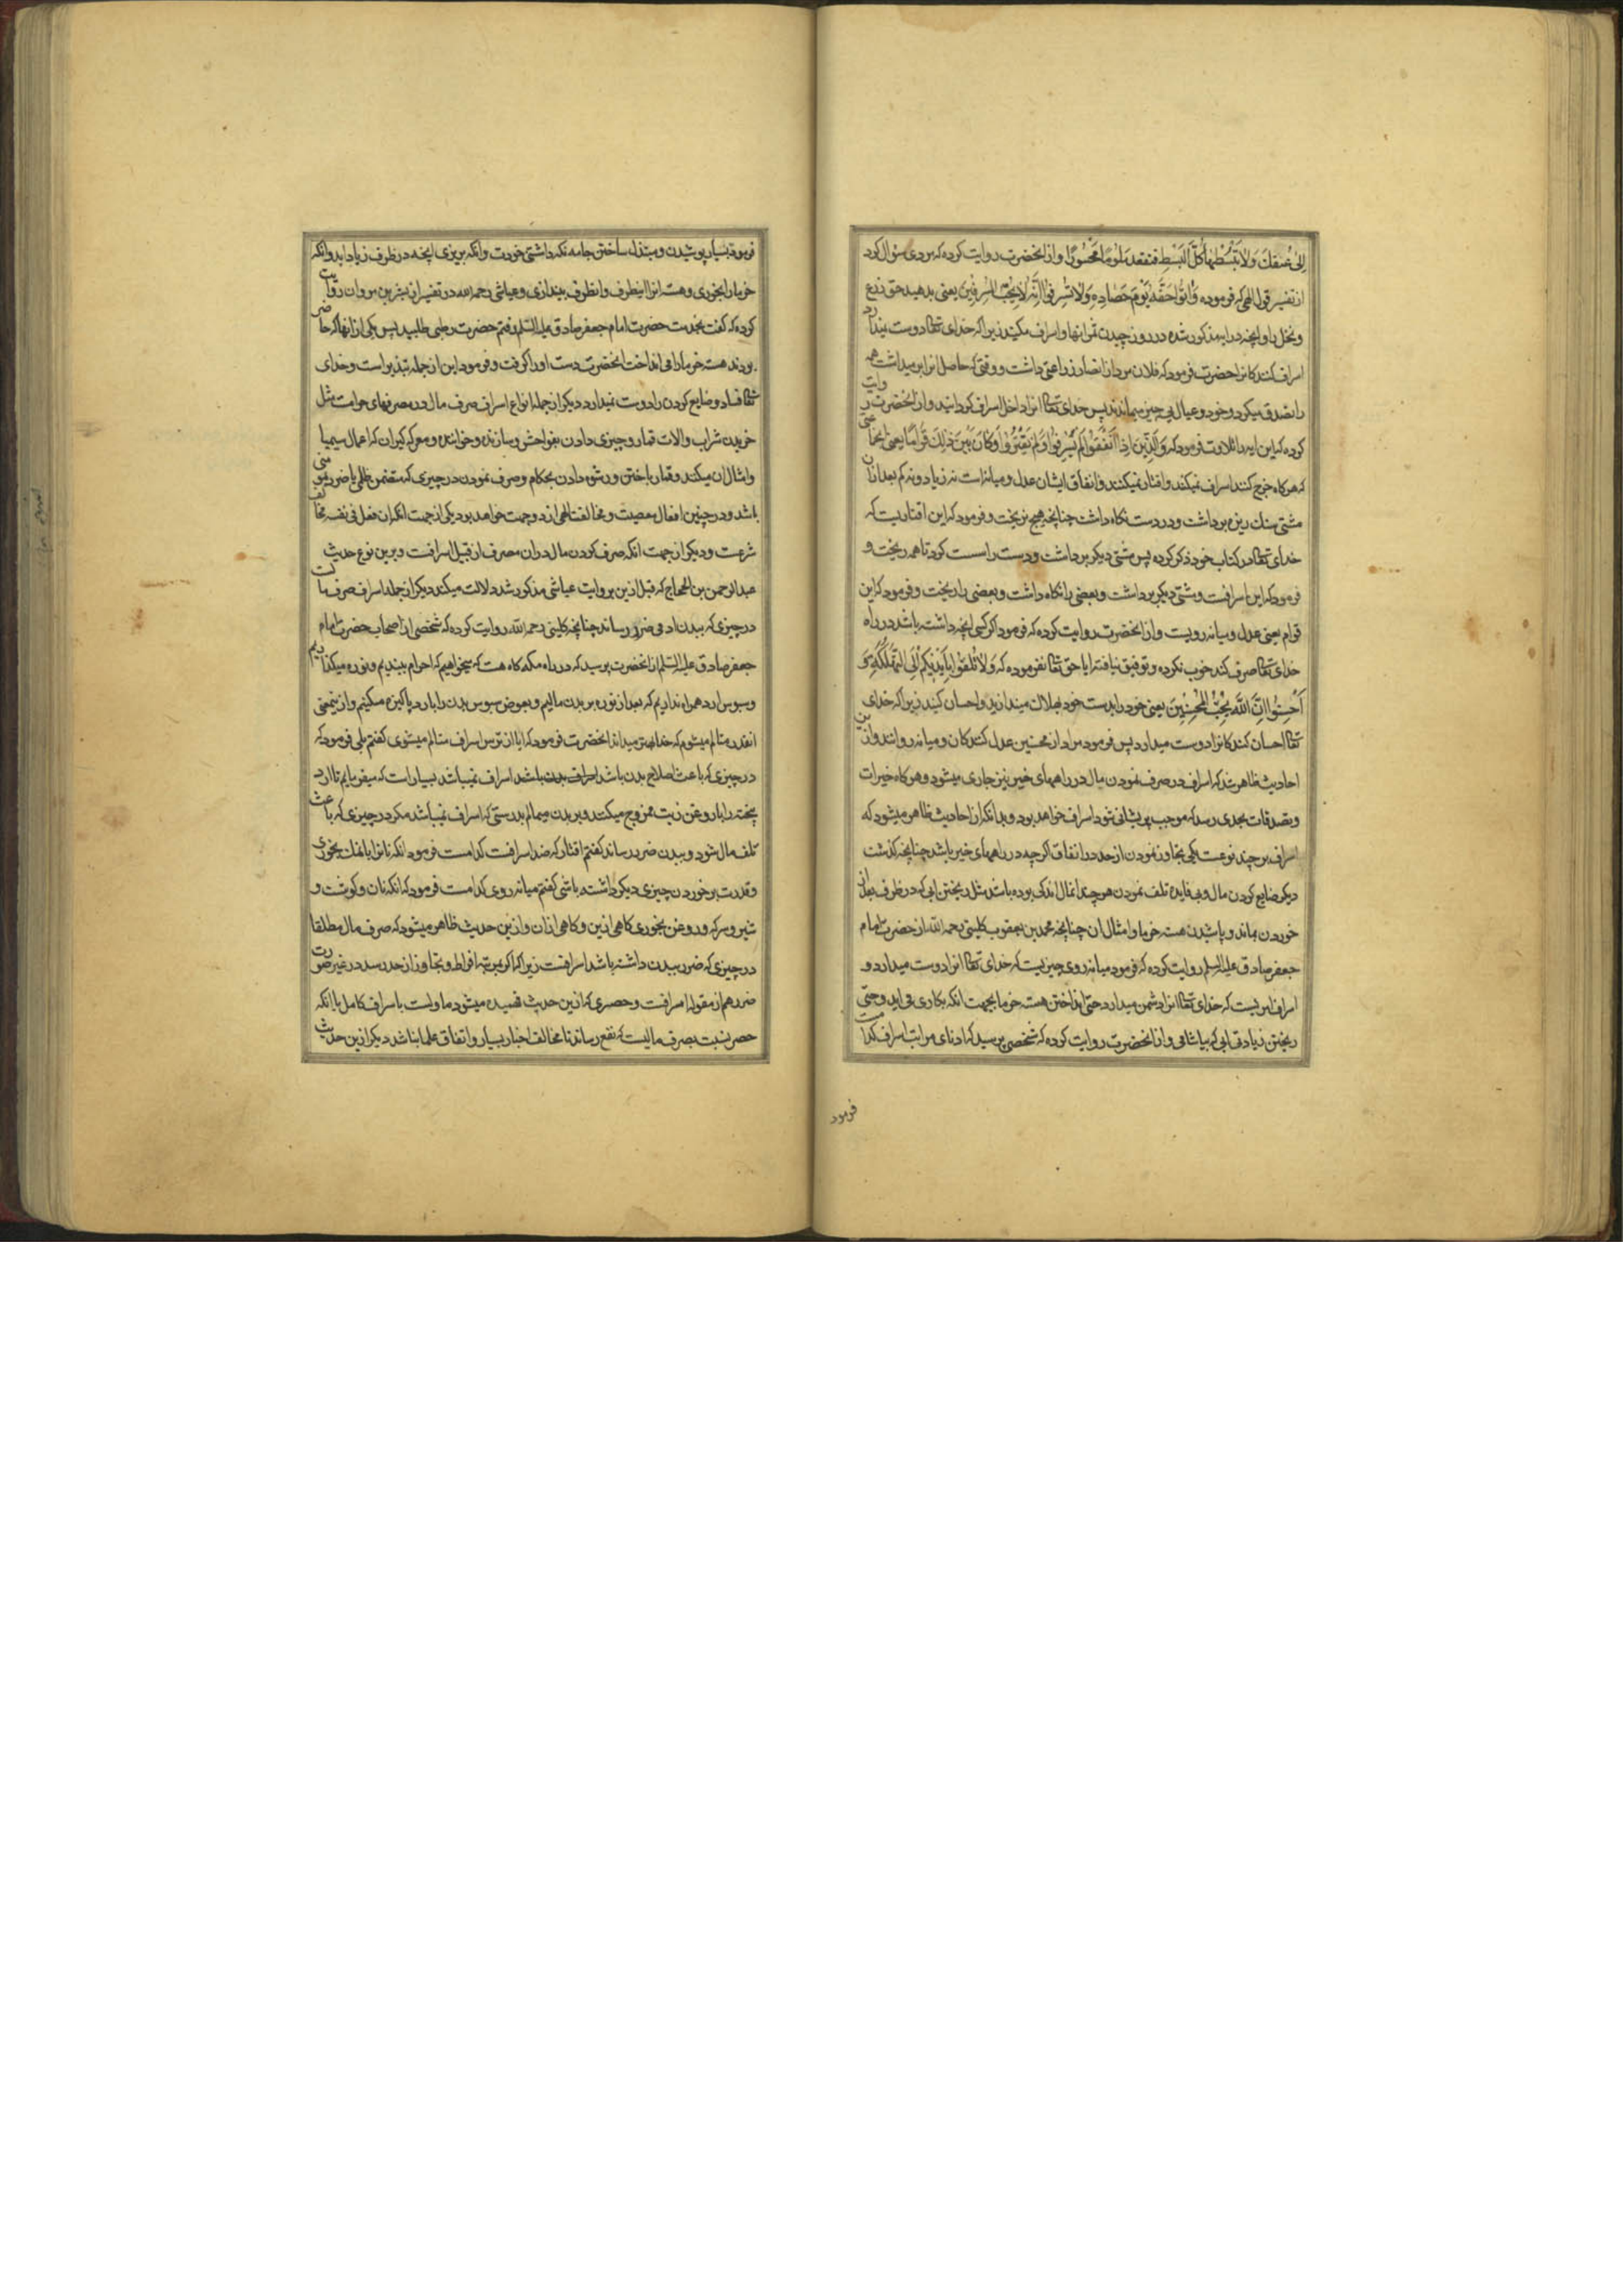 الی عنقك ولا تبسطها كل البسط فتقعد ملوما محسورا و از انحضرت روایت کرده که مردی سؤال کرد
از تفسیر قول الهی که فرموده واتوا حقه یوم حصاده ولا تسرفوا انه لا یحب المسرفین یعنی بدهید حق زرع
و نخل را و انچه در ایه مذکور شده در روز چیدن ثمر انها و اسراف مکنید زیرا که خدای تعالی دوست نمیدارد
اسراف کنندکانرا حضرت فرمود که فلان مرد از انصار زراعتی داشت و وقتی که حاصل انرا برمیداشت همه
را تصدق میکرد و خود و عیال بی چیز میماندند پس خدای تعالی انرا داخل اسراف کردانید و از انحضرت روایت
کرده که این ایه را تلاوت فرمود که والذین اذا انفقوا لم یسرفوا ولم یقتروا وکان بین ذلك قواما یعنی انجماعتی
که هرکاه خرج کنند اسراف نمیکنند و اقتار نمیکنند و انفاق ایشان عدل و میانه است نه زیاد و نه کم بعد ازان
مشتی سنك ریزه برداشت و در دست نکاه داشت چنانچه هیچ نریخت و فرمود که این اقتاریست که
خدای تعالی در کتاب خود ذکر کرده پس مشتی دیکر برداشت و دست را سست کرد تا همه ریخت و
فرمود که این اسرافست و مشتی دیکر برداشت و بعضی را نکاه داشت و بعضی را ریخت و فرمود که این
قوام یعنی عدل و میانه رویست و از انحضرت روایت کرده که فرمود اکر کسی انچه داشته باشد در راه
خدای تعالی صرف کند خوب نکرده و توفیق نیافته ایا حق تعالی نفرموده که ولا تلقوا بایدیكم الی التهلكة و
احسنوا ان الله یحب المحسنین یعنی خود را بدست خود بهلاك میندازید و احسان کنید زیرا که خدای
تعالی احسان کنندکانرا دوست میدارد پس فرمود مراد از محسنین عدل کنندکان و میانه روانند و ازین
احادیث ظاهر شد که اسراف در صرف نمودن مال در راههای خیر نیز جاری میشود و هرکاه خیرات
و تصدقات بحدی رسد که موجب پریشانی شود اسراف خواهد بود و بدانکه از احادیث ظاهر میشود که
اسراف بر چند نوعست یکی تجاوز نمودن از حد در انفاق اکرچه در راههای خیر باشد چنانچه کذشت
دیکر ضایع کردن مال و بی فایده تلف نمودن هرچند انمال اندکی بوده باشد مثل ریختن ابی که در ظرف بعد از
خوردن بماند و پاشیدن هسته خرما و امثال ان چنانچه محمد بن یعقوب کلینی رحمه الله از حضرت امام
جعفر صادق علیه السلم روایت کرده که فرمود میانه روی چیزیست که خدای تعالی انرا دوست میدارد و
اسراف امریست که خدای تعالی انرا دشمن میدارد حتی انداختن هسته خرما بجهت انکه بکاری می اید و حتی
ریختن زیادتی ابی که بیاشامی و از انحضرت روایت کرده که شخصی پرسید که ادنای مراتب اسراف کدامست
فرمود
فرمود بسیار پوشیدن و مبتذل ساختن جامه نکه داشتی خودت و انکه بریزی انچه در ظرف زیاد اید و انکه
خرما را بخوری و هسته انرا اینطرف و انطرف بیندازی و عیاشی رحمه الله در تفسیر از بشر بن مروان روایت
کرده که کفت بخدمت حضرت امام جعفر صادق علیه السلم رفتم حضرت رطبی طلبید پس یکی از انها که حاضر
بودند هسته خرما را می انداخت انحضرت دست او را کرفت و فرمود این از جمله تبذیر است و خدای
تعالی فساد و ضایع کردن را دوست نمیدارد دیکر از جمله انواع اسراف صرف مال در مصرفهای حرامست مثل
خریدن شراب و الات قمار و چیزی دادن بفواحش و سازنده و خواننده و معرکه کیران که اعمال سیمیا
و امثال ان میکنند و قمار باختن و رشوه دادن بحکام و صرف نمودن در چیزی که متضمن ظلمی یا ضرر مؤمنی
باشد و در چنین افعال معصیت و مخالفت الهی از دو جهت خواهد بود یکی از جهت انکه ان فعل فی نفسه مخالف
شرعست و دیکر از جهت انکه صرف کردن مال در ان مصرف از قبیل اسرافست و برین نوع حدیث
عبدالرحمن بن الحجاج که قبل ازین بروایت عیاشی مذکور شد دلالت میکند دیکر از جمله اسراف صرف مالست
در چیزی که ببدن ادمی ضرر رساند چنانچه کلینی رحمه الله روایت کرده که شخصی از اصحاب حضرت امام
جعفر صادق علیه السلم از انحضرت پرسید که در راه مکه کاه هست که میخواهیم که احرام ببندیم و نوره میکذاریم
و سبوس ارد همراه نداریم که بعد از نوره بر بدن مالیم و بعوض سبوس بدن را بارد پاکیزه میکنیم و ازینمعنی
انقدر متالم میشوم که خدا بهتر میداند انحضرت فرمود که ایا از ترس اسراف متالم میشوی کفتم بلی فرمود که
در چیزی که باعث اصلاح بدن باشد اسراف نمیباشد بسیار است که میفرمایم تا ارد
بیخته را با روغن زیت ممزوج میکنند و بر بدن میمالم بدرستی که اسراف نمیباشد مکر در چیزی که باعث
تلف مال شود و ببدن ضرر رساند کفتم اقتار که ضد اسرافست کدامست فرمود انکه نانرا با نمك بخوری
و قدرت بر خوردن چیزی دیکر داشته باشی کفتم میانه روی کدامست فرمود که انکه نان و کوشت و
شیر و سرکه و روغن بخوری کاهی ازین و کاهی ازان و ازین حدیث ظاهر میشود که صرف مال مطلقا
در چیزی که ضرر ببدن داشته باشد اسرافست زیرا که اکر بمرتبه افراط و تجاوز از حد رسد در غیر صورت
ضرر هم از مقوله اسرافست و حصری که ازین حدیث فهمیده میشود ماولست باسراف کامل یا انکه
حصر نسبت بصرف مالیست که نفع رساند تا مخالف اخبار بسیار و اتفاق علما نباشد دیکر ازین حدیث